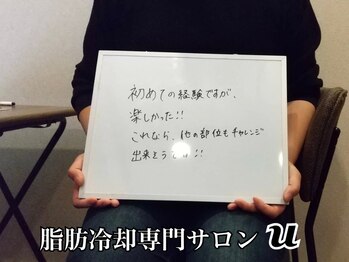 初めての経験ですが、
楽しかった!!
これなら、他の部位もチャレンジ
出来そうです!!
脂肪冷却専門サロン U